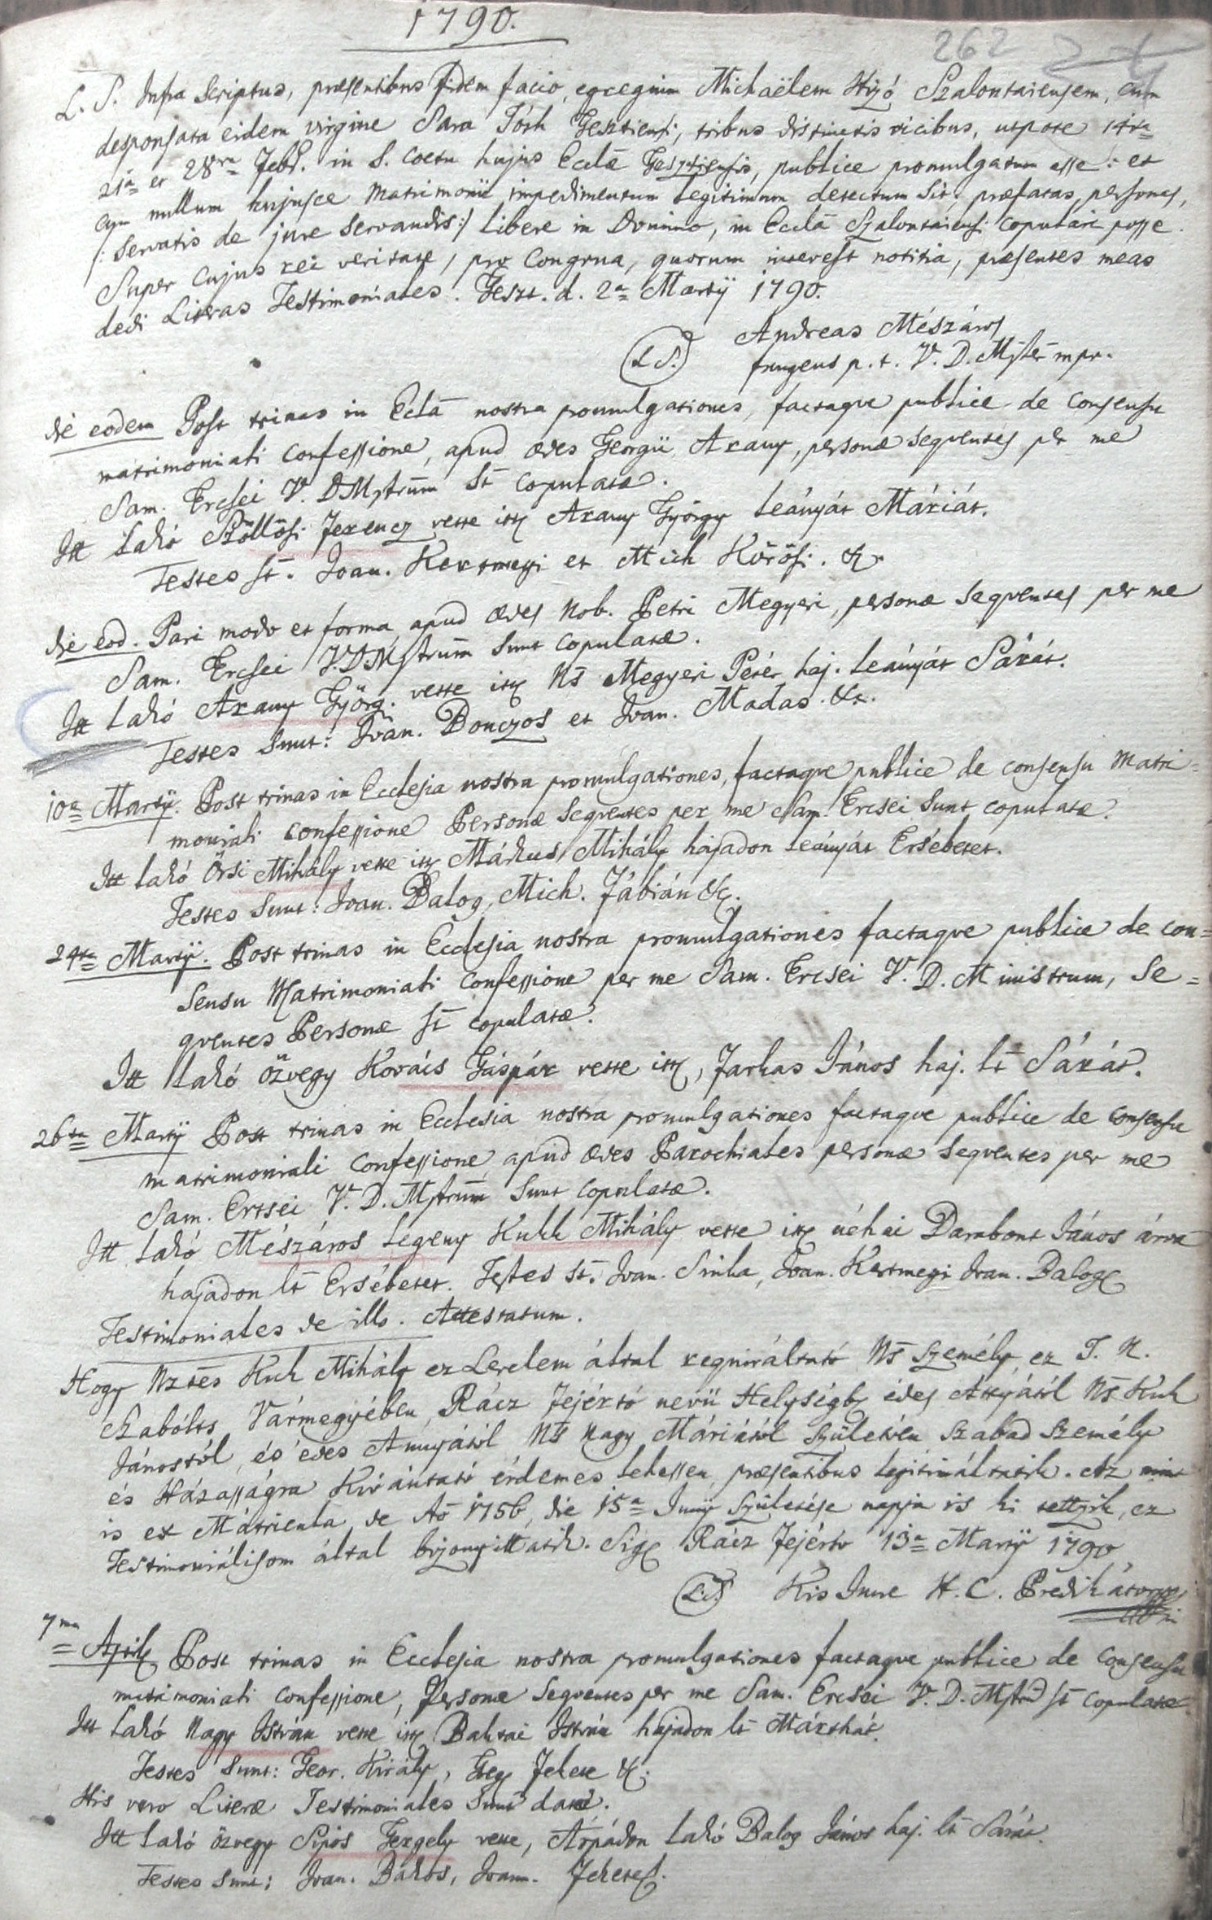 1790.
262
L. S. Infra Scriptus, præsentibus fidem facio, egregium Michaëlem Szalontaiensem, cum
desponsata eidem virgine Sara Tóth Gesztiensi, tribus distinctis vicibus, utpote 14ta
21a et 28va Febr. in S. Coetu hujus Eccla Gesztiensis, publice promulgatum esse: et
cum nullum hujusce Matrimonii impedimentum legitimum detectum sit, præfatas personas,
/: servatis de jure servandis:/ libere in Domino, in Eccla Szalontaiensi copulari posse.
Super cujus rei veritate, pro congrua, quorum interest notitia, præsentes meas
dedi Literas Testimoniales. Geszt. d. 2a Martÿ 1790.
Andreas Mészáros
(L.S.) p. t. V. D. Mster mpr.
die eodem Post trinas in Eccla nostra promulgationes, factaque publice de consensu
matrimoniali confessione, apud ædes Georgii Arany, personæ seqventes per me
Sam. Ercsei V. D. Mstrum st copulatæ.
Itt lakó Szöllősi Ferencz vette itt Arany György leányát Máriát.
Testes st. Joan. Kertmegi et Mich Kőrösi. &c
die eod. Pari modo et forma, apud ædes Nob. Petri Megyeri, personæ seqventes per me
Sam. Ercsei V.D.Mstrum sunt copulatæ.
Itt lakó Arany Györg. vette itt Ns Megyeri Péter haj. leányát Sárát.
Testes sunt: Joan. Bonczos et Joan. Madas. &c.
10a Martÿ. Post trinas in Ecclesia nostra promulgationes, factaque publice de consensu Matri=
moniali confessione Personæ seqventes per me Sam. Ercsei sunt copulatæ.
Itt lakó Őrsi Mihály vette itt Márkus Mihály hajadon leányát Ersébetet.
Testes sunt: Joan. Balog, Mich. Fábián &c.
24ta Martÿ. Post trinas in Ecclesia nostra promulgationes factaque publice de con=
sensu Matrimoniali confessione per me Sam. Ercsei V. D. Ministrum, se=
qventes Personæ st copulatæ.
Itt lakó özvegy Kovács Gáspár vette itt, Farkas János haj. lt Sárát.
26ta Martÿ Post trinas in Ecclesia nostra promulgationes factaque publice de consensu
matrimoniali confessione, apud ædes Parochiales personæ seqventes per me
Sam. Ercsei V. D. Mstrum sunt copulatæ.
Itt lakó Mészáros legeny Kukk Mihály vette itt néhai Darabont János árva
hajadon lt Ersébetet. Testes st. Joan. Sinka, Joan. Kertmegi Joan. Balog
Testimoniales de illo. Attestatum.
Hogy Nztes Kuk Mihály ez Levelem által reqviráltató Ns Személy ez T. N.
Szabólts Vármegyében, Rácz Fejértó nevü Helységb. édes Attyától Ns Kuk
Jánostól, és édes Annyától Ns Nagy Máriától születvén szabad személy
és Házasságra Kivántató érdemes lehessen, præsentibus legitimáltatik. Az mint
is ex Mátricula de Ao 1756, die 15a Junÿ születése napja is ki tettzik, ez
Testimoniálisom által bizonyittatik. Sig. Rácz Fejértó 13a Martÿ 1790.
(L.S.) Kis Imre H. C. Prédikátora
7ma April. Post trinas in Ecclesia nostra promulgationes factaque publice de consensu
matrimoniali confessione, Personæ seqventes per me Sam. Ercsei V. D. Mstrum st copulatæ
Itt lakó Nagy István vette itt Baktai István hajadon lt Márthát.
Testes sunt: Geor. Király, Greg Fekete &c.
His vero Literæ Testimoniales sunt datæ.
Itt lakó özvegy Sipos Gergely vette, Árpádon lakó Balog János haj. lt Sárát.
Testes sunt: Joan. Bakos, Joann. Fekete.